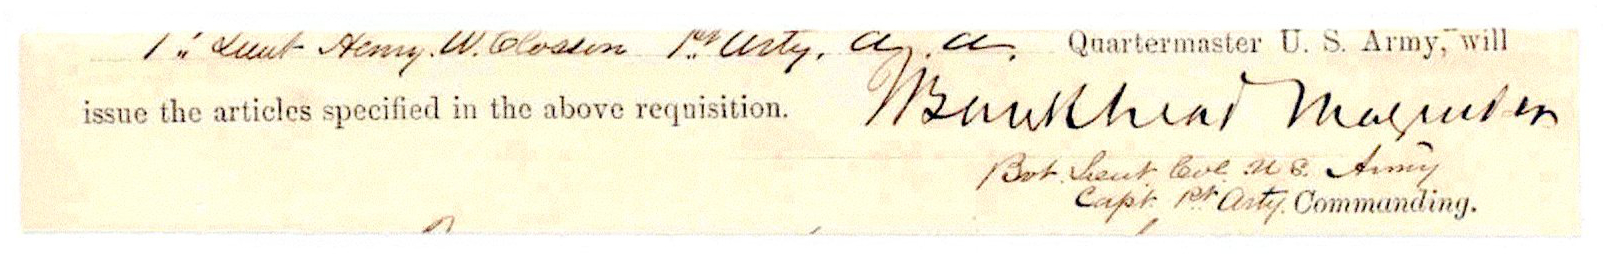 1st Lieut Henry. W. Closson 1st Arty, A. A. Quartermaster U. S. Army, will
issue the articles specified in the above requisition.
J Bankhead Magruder
Bvt. Lieut. Col. U S. Army
Capt. 1st Arty. Commanding.